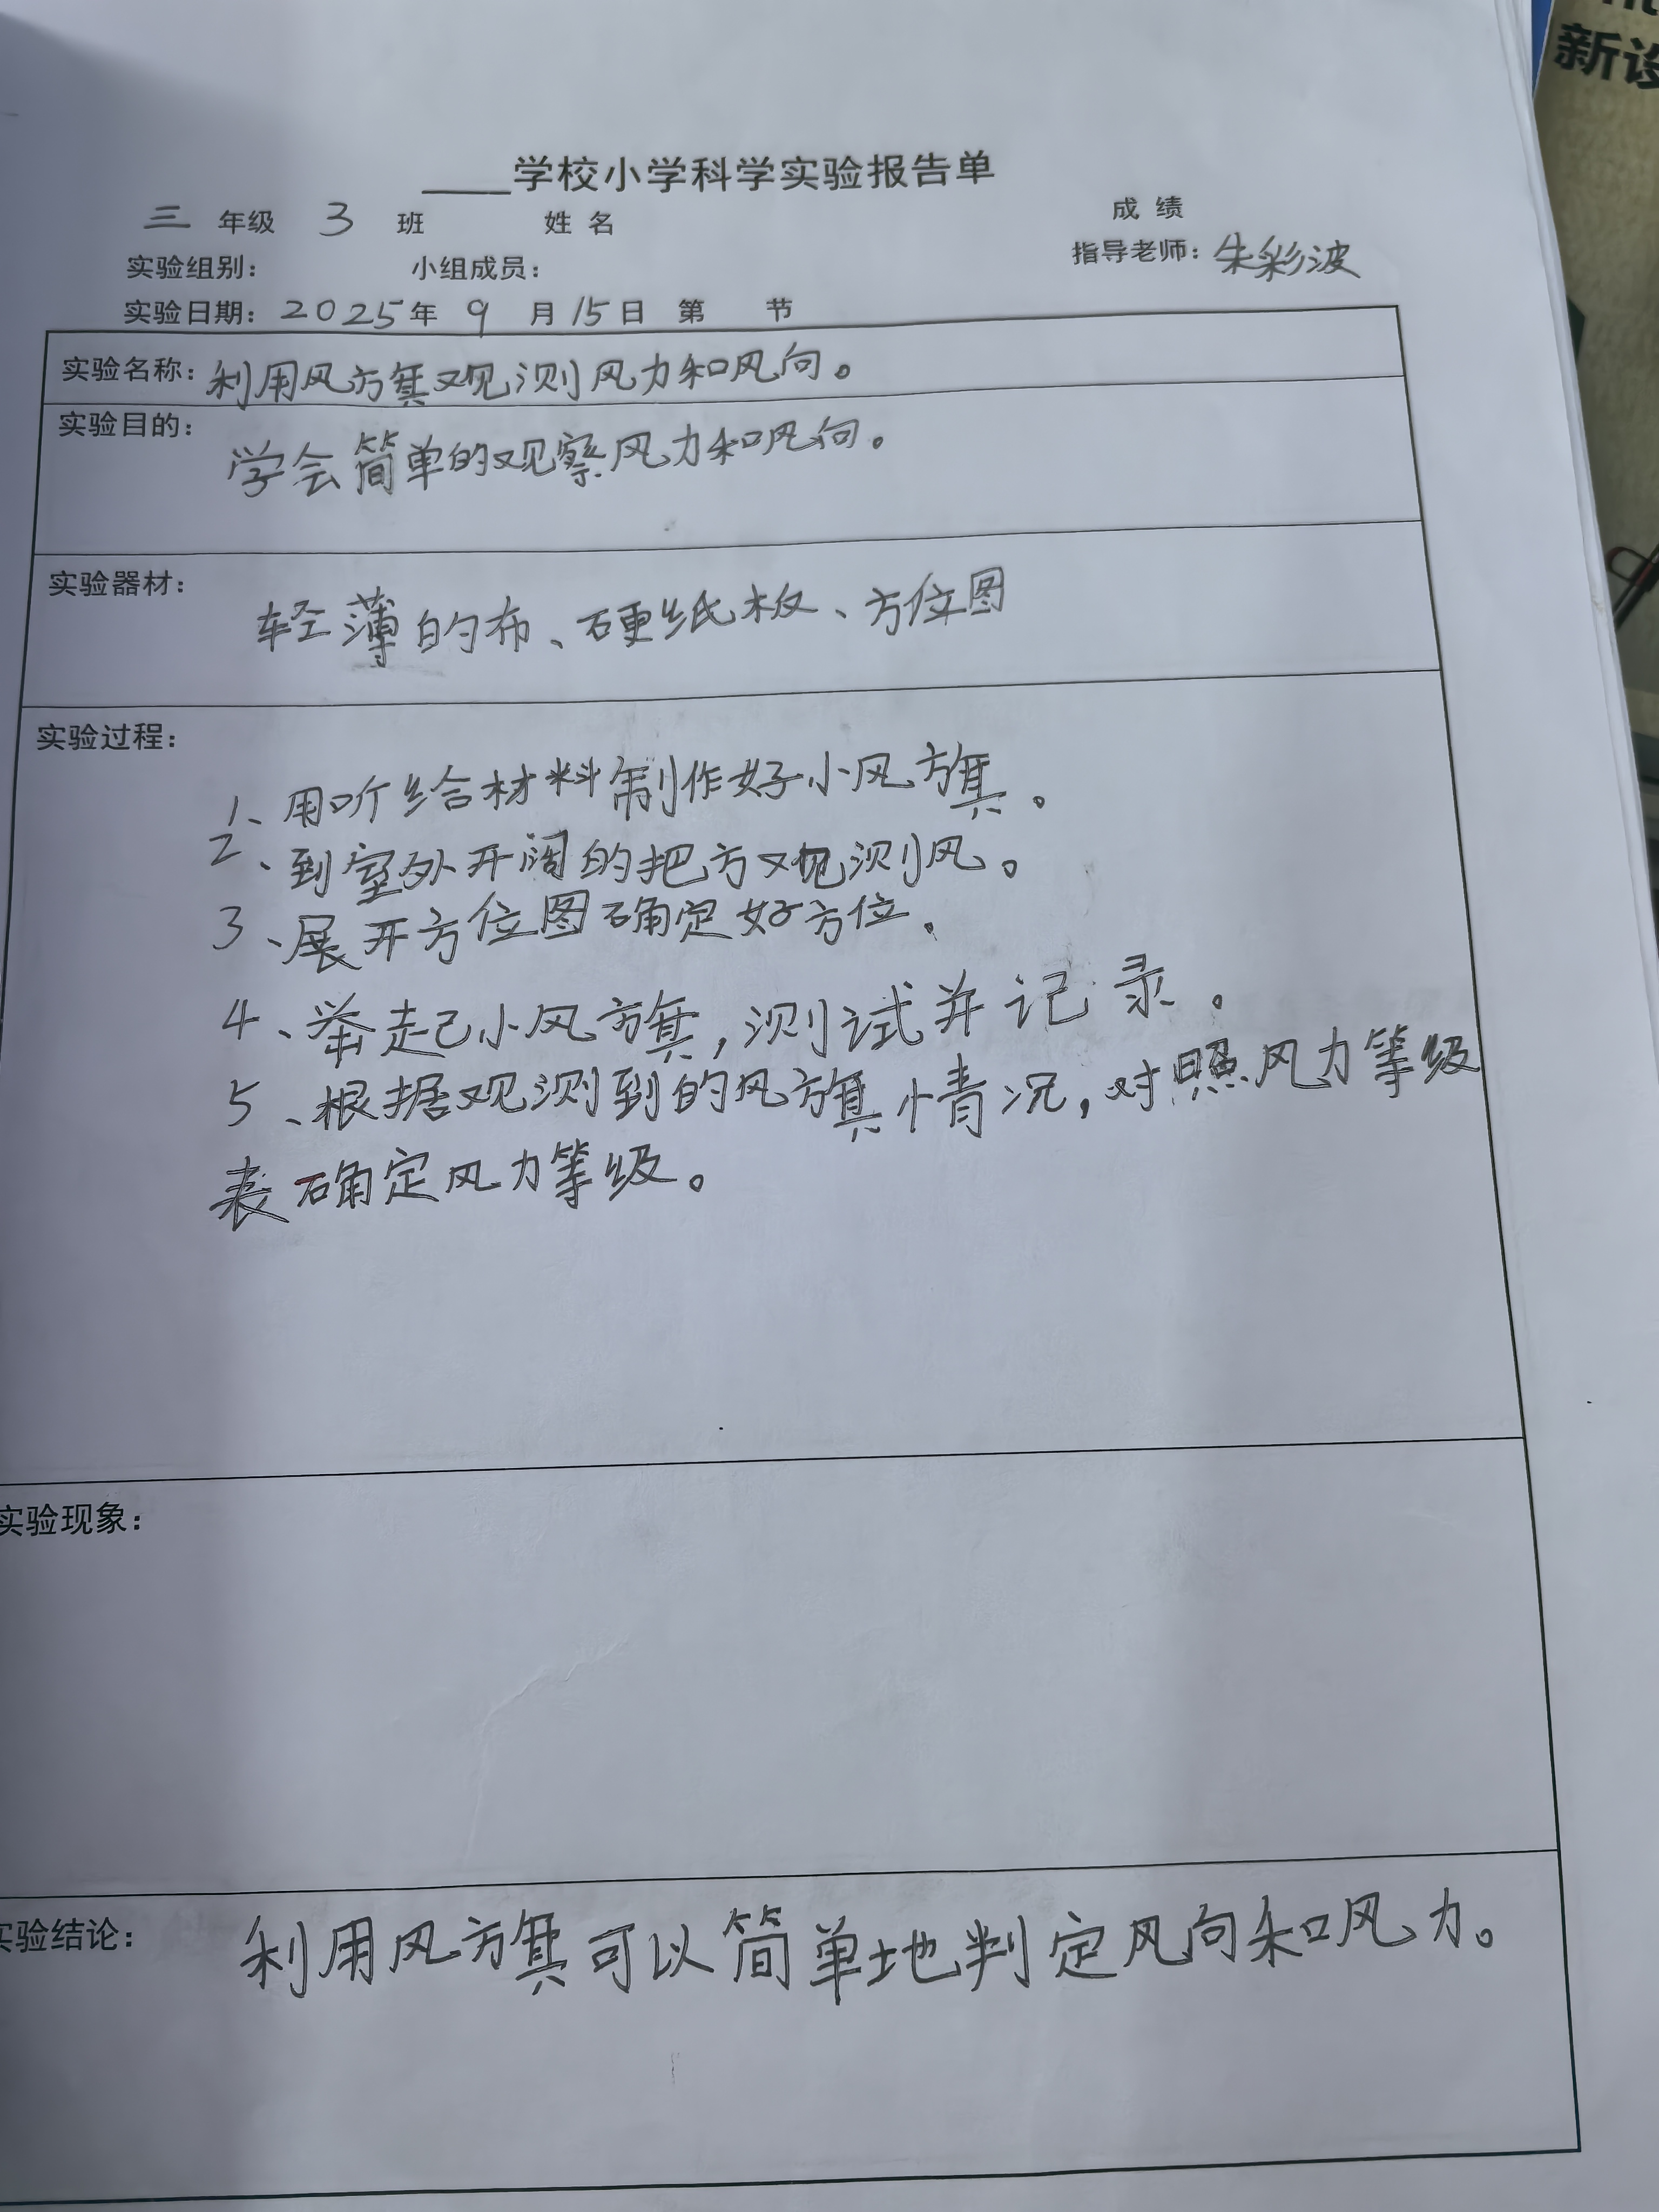 新设
____学校小学科学实验报告单
三 年级 3 班 姓 名 成 绩
实验组别： 小组成员： 指导老师：朱彩波
实验日期：2025年 9 月15日 第 节
实验名称：利用风旗观测风力和风向。
实验目的：
学会简单的观察风力和风向。
实验器材：
轻薄的布、硬纸板、方位图
实验过程：
1、用听给材料制作好小风旗。
2、到室外开阔的把方观测风。
3、展开方位图确定好方位.
4、举起小风旗，测试并记录。
5、根据观测到的风旗情况，对照风力等级
表确定风力等级。
实验现象：
实验结论： 利用风旗可以简单地判定风向和风力。